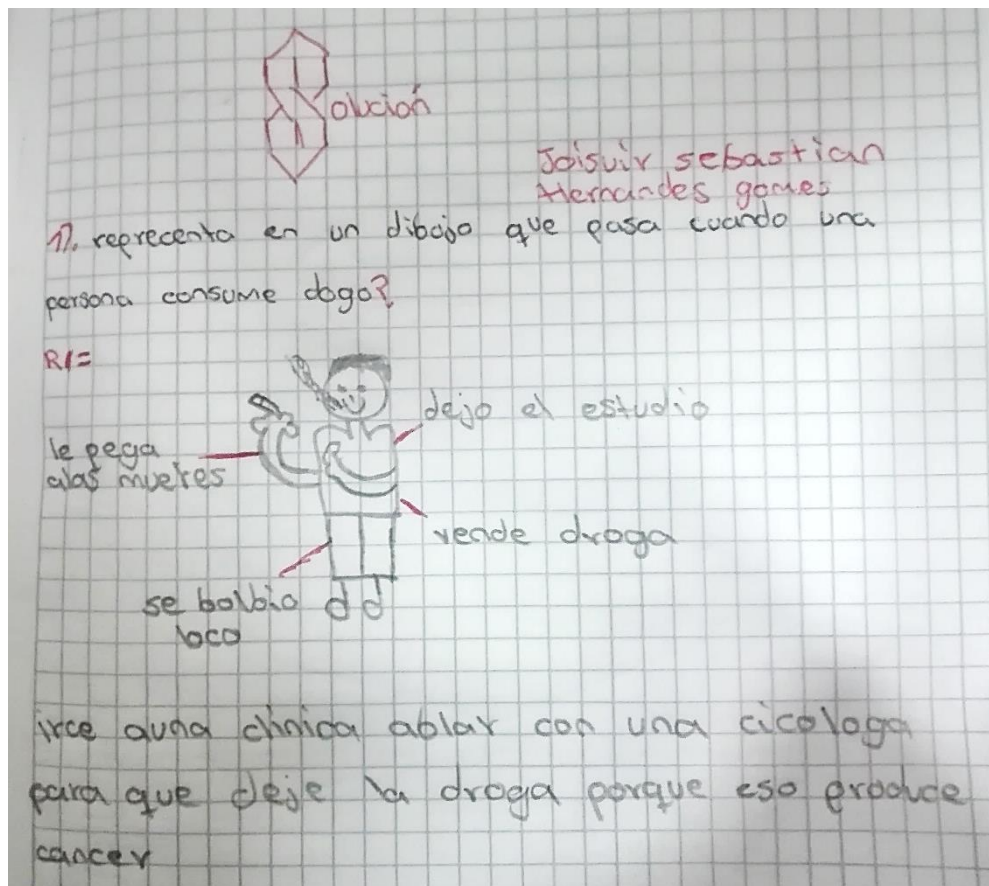 Solución
Joisuir sebastian
Hernandes gomes
1). reprecenta en un dibojo que pasa cuando una
persona consume dogo?
R/=
dejo el estudio
le pega
alas mueres
vende droga
se bolbio
loco
irce auna clinica ablar con una cicologa
para que deje la droga porque eso produce
cancer